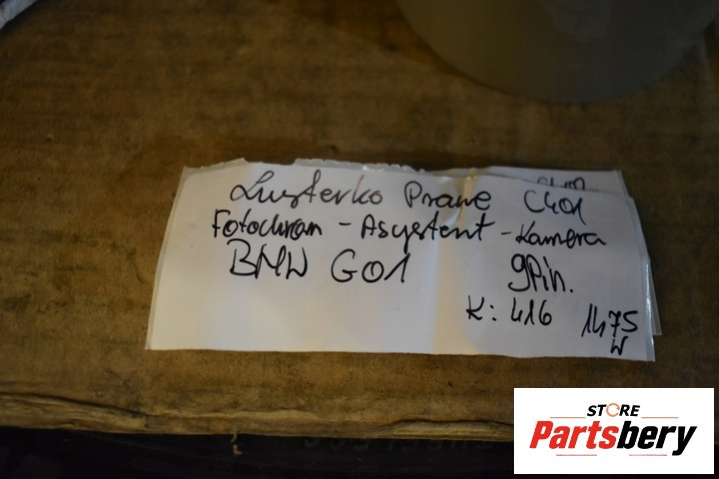 Lusterko Prawe C401
Fotochrom - Asystent - Kamera
BMW G01 9Pin.
K: 416 1475
W
STORE
Partsbery